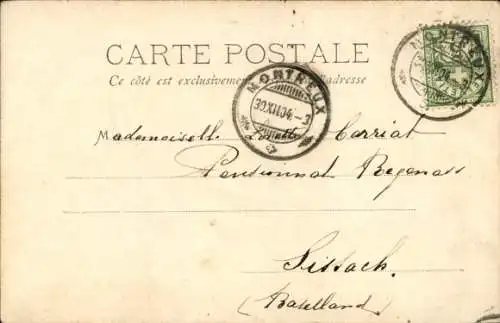 CARTE POSTALE
Ce côté est exclusivement l'adresse
MONTREUX
30.XII.04.-3
MONTREUX
Mademoiselle Carriat
Pensionnat Regenass
Sissach.
(Baselland)